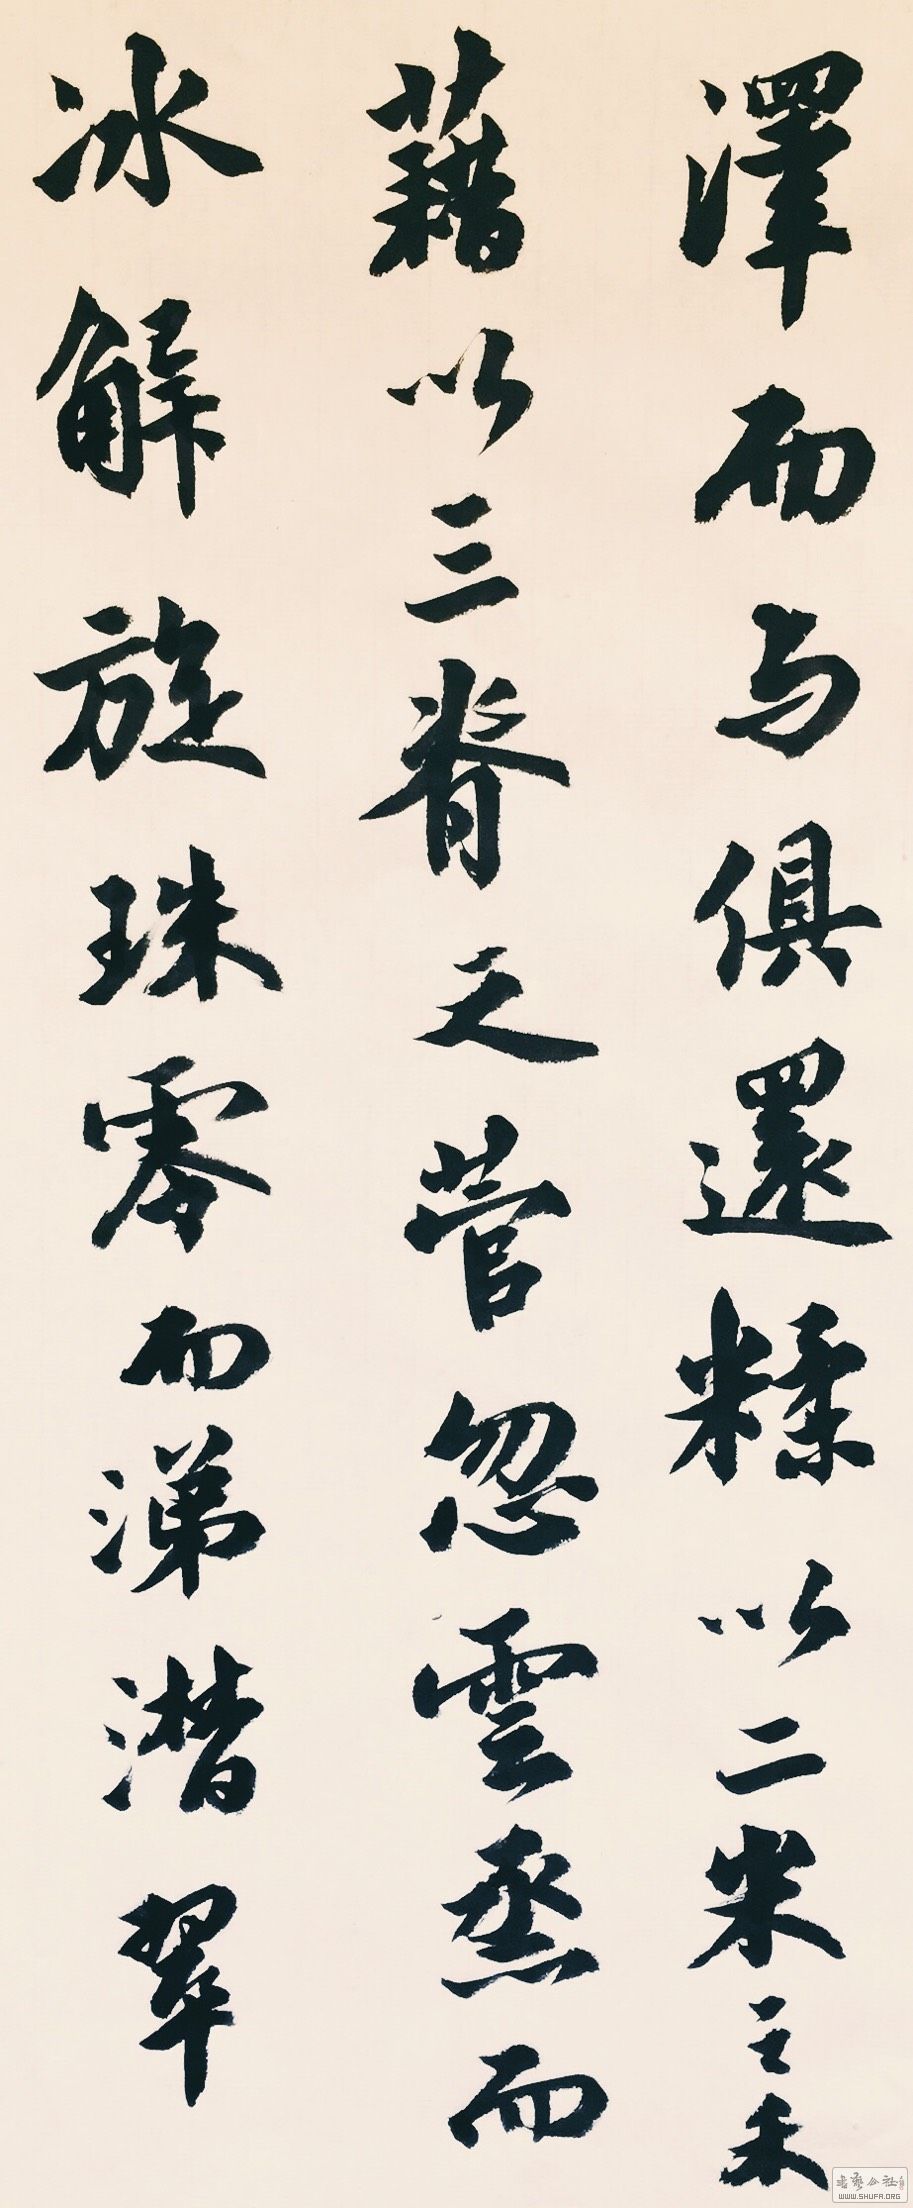 澤而与俱還糅以二米之禾
藉以三脊之菅忽雲烝而
冰解旋珠零而涕潜翠
書藝公社
WWW.SHUFA.ORG